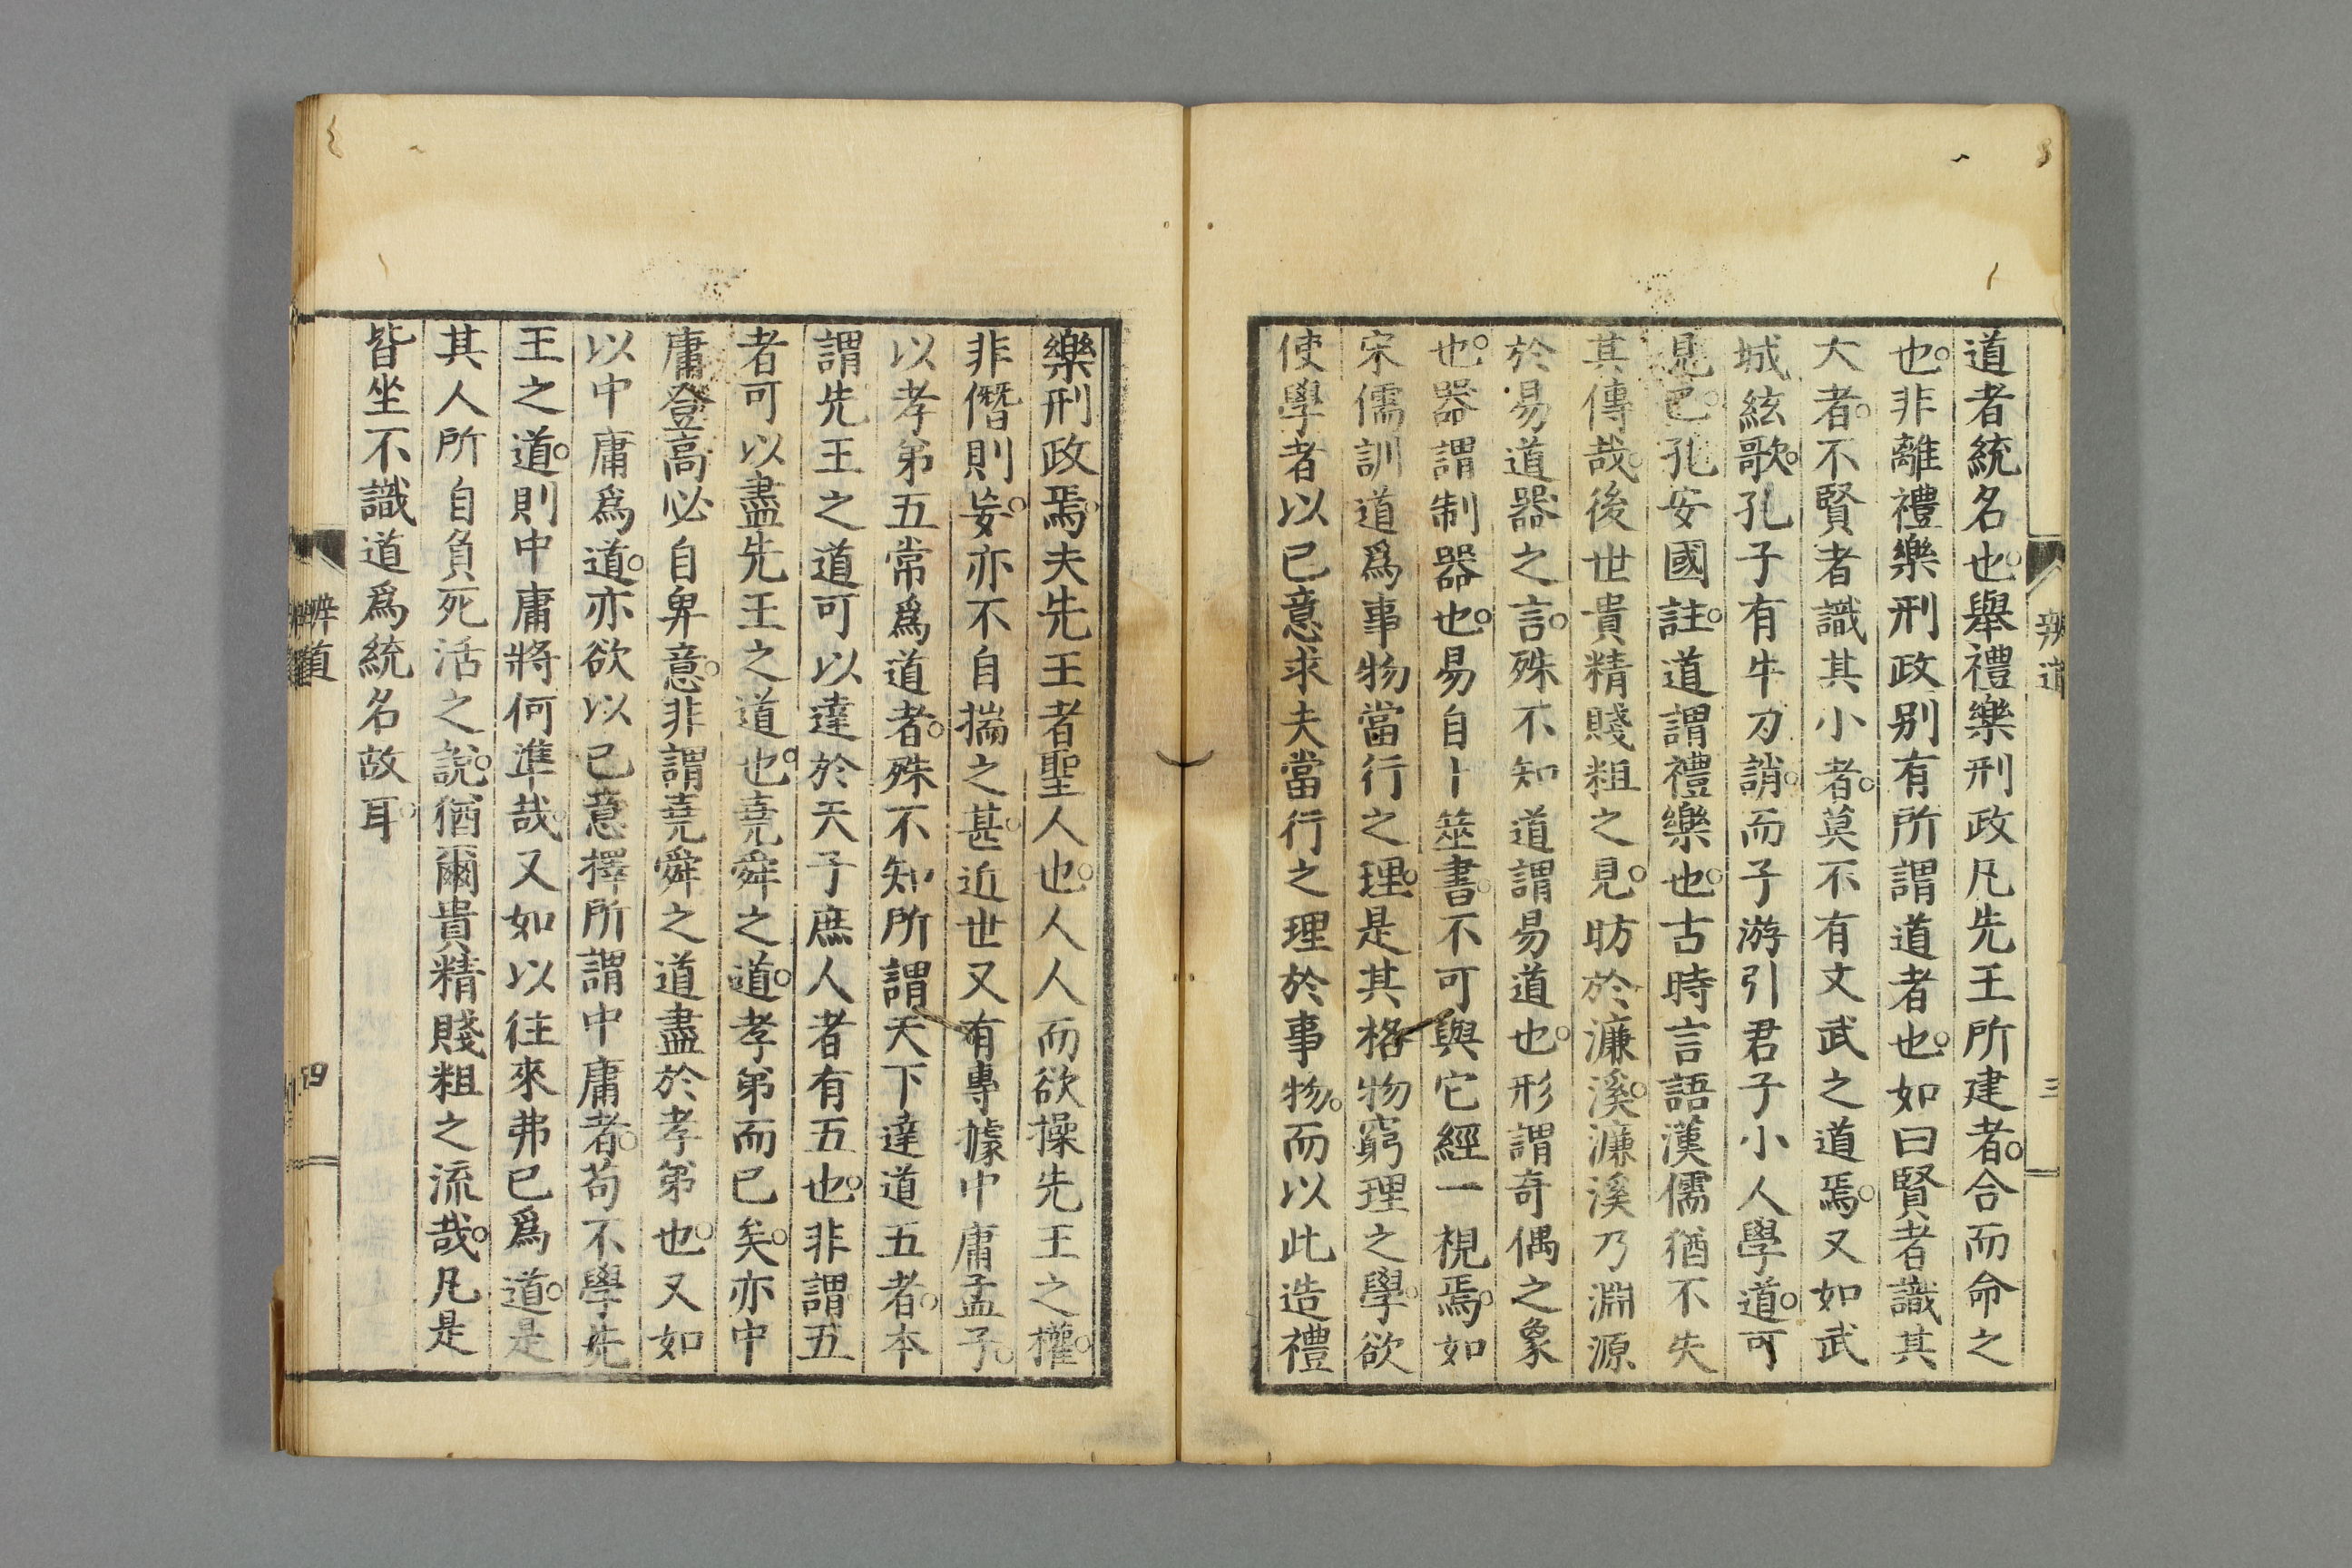 道者統名也。舉禮樂刑政凡先王所建者。合而命之
也。非離禮樂刑政別有所謂道者也。如曰賢者識其
大者。不賢者識其小者。莫不有文武之道焉。又如武
城絃歌。孔子有牛刀誚。而子游引君子小人學道。可
見已。孔安國註。道謂禮樂也。古時言語漢儒猶不失
其傳哉。後世貴精賤粗之見。昉於濂溪。濂溪乃淵源
於易道器之言。殊不知道謂易道也。形謂奇偶之象
也。器謂制器也。易自卜筮書。不可與它經一視焉。如
宋儒訓道爲事物當行之理。是其格物窮理之學。欲
使學者以己意求夫當行之理於事物。而以此造禮
辨道
三
樂刑政焉。夫先王者聖人也。人人而欲操先王之權。
非僭則妄。亦不自揣之甚。近世又有專據中庸孟子。
以孝弟五常爲道者。殊不知所謂天下達道五者。本
謂先王之道可以達於天子庶人者有五也。非謂五
者可以盡先王之道也。堯舜之道。孝弟而已矣。亦中
庸登高必自卑意。非謂堯舜之道盡於孝弟也。又如
以中庸爲道。亦欲以己意擇所謂中庸者。苟不學先
王之道。則中庸將何準哉。又如以往來弗已爲道。是
其人所自負死活之說。猶爾貴精賤粗之流哉。凡是
皆坐不識道爲統名故耳。
辨道
四